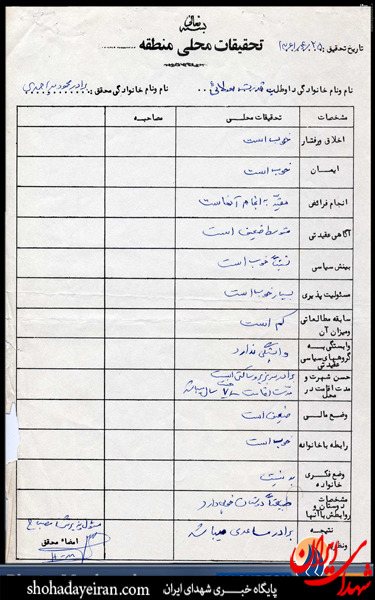 بسمه تعالی
تحقیقات محلی منطقه
تاریخ تحقیق:
نام و نام خانوادگی داوطلب
نام و نام خانوادگی محقق: برادر
مشخصات
تحقیقات محلی
مصاحبه
اخلاق ورفتار
خوب است
ایمان
خوب است
انجام فرائض
مقید به انجام آنهاست
آگاهی عقیدتی
متوسط ضعیف است
بینش سیاسی
نسبتاً خوب است
مسئولیت پذیری
بسیار خوب است
سابقه مطالعاتی
ومیزان آن
کم است
وابستگی به
گروههای سیاسی
عقیدتی
وابستگی ندارد
حسن شهرت و
مدت اقامت در
محل
وضع مالی
ضعیف است
رابطه باخانواده
خوب است
وضع فکری
خانواده
بد نیست
مشخصات
دوستان و
روابطش باآنها
دوستان خوبی دارد
نتیجه
برادر مساعدی میباشد
امضاء محقق
شهدای ایران
shohadayeiran.com
پایگاه خبری شهدای ایران